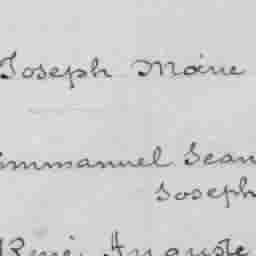 Joseph Marie
Emmanuel Jean
Joseph
René, Auguste